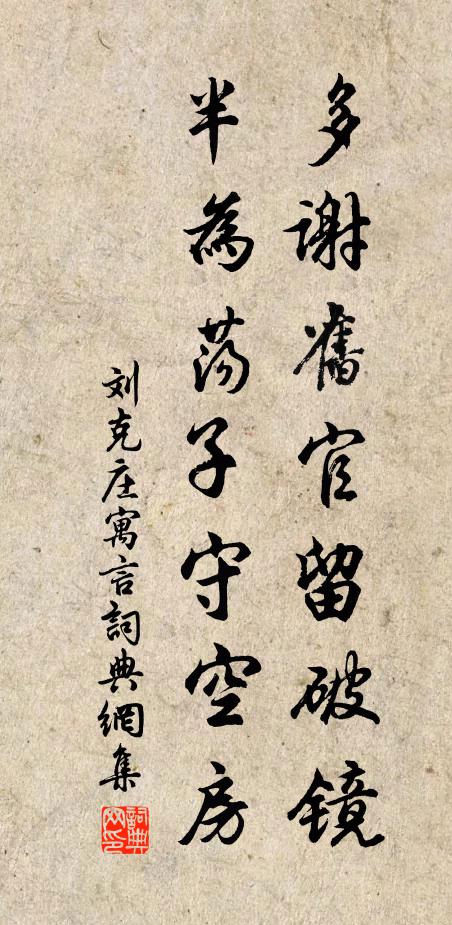 多謝舊官留破镜
半為荡子守空房
刘克庄寓言詞典網集
詞典網印